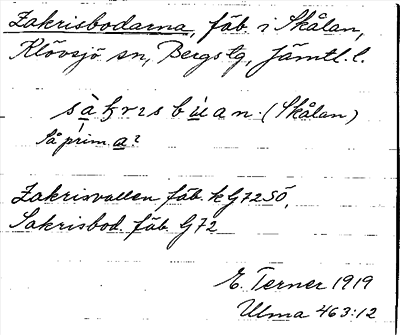 Zakrisbodarna, fäb. i Skålan,
Klövsjö sn, Bergs tg, Jämtl. l.
(Skålan)
Så prim. a?
Zakrisvallen fäb. k G 72 SÖ,
Sakrisbod. fäb. G 72
E. Terner 1919
Ulma 463:12